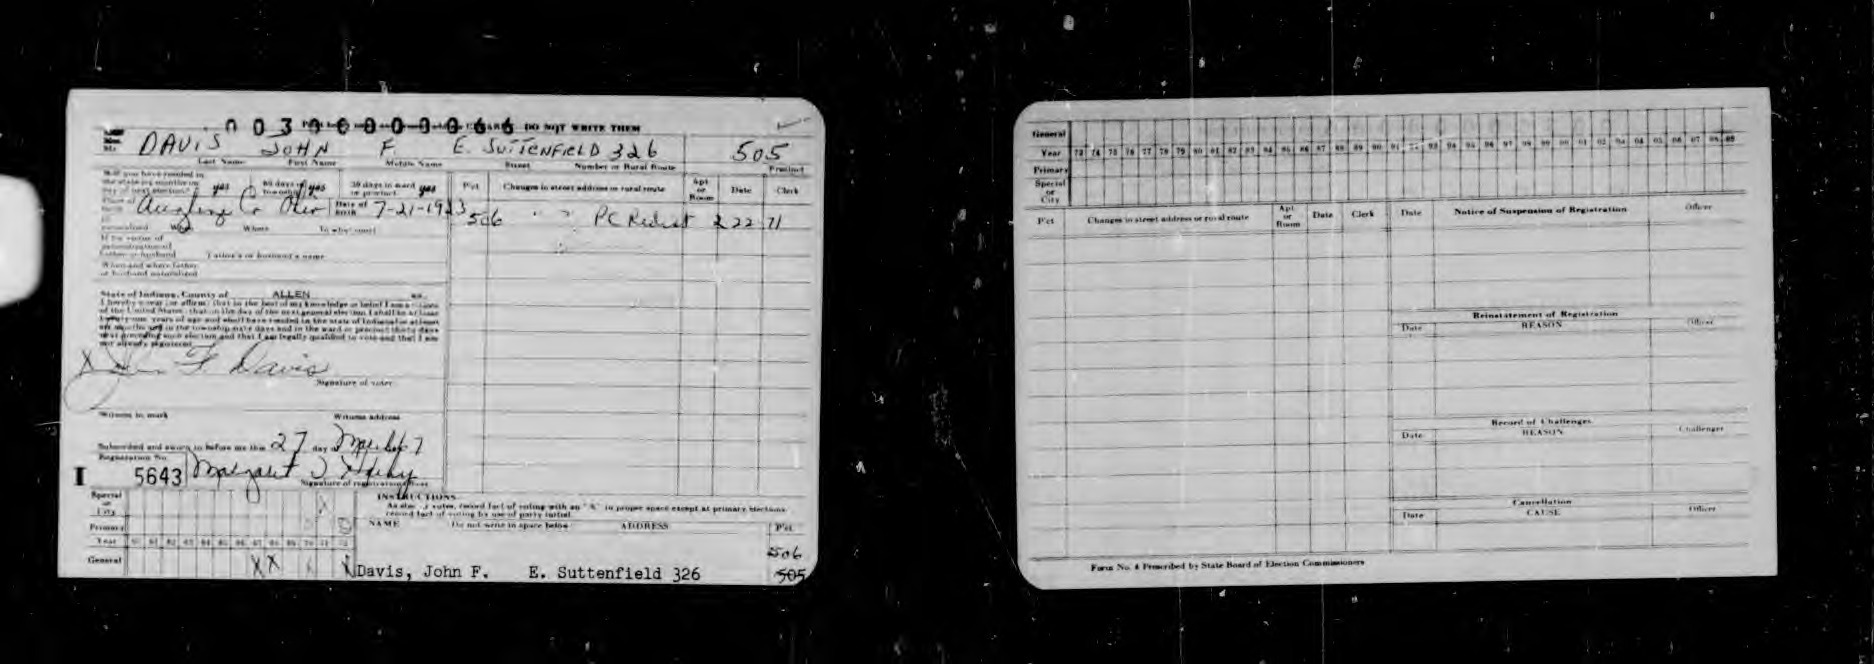 00390000066 DO NOT WRITE THEM
DAVIS JOHN F. E. SUTTENFIELD 326 505
Last Name First Name Middle Name Street Number or Rural Route Precinct
Will you have resided in the state six months on day of next election? yes 60 days in township yes 30 days in ward or precinct yes
P'ct Changes in street address or rural route Apt. or Room Date Clerk
Place of birth Auglaize Co Ohio Date of birth 7-21-1923
506 " " PC Redist 2 22 71
naturalized When Where To why court
Father or husband Father's or husband's name
When and where father or husband naturalized
State of Indiana, County of ALLEN ss.
I hereby swear (or affirm) that to the best of my knowledge or belief I am a citizen
of the United States; that on the day of the next general election I shall be at least
twenty-one years of age and shall have resided in the state of Indiana for at least
six months and in the township sixty days and in the ward or precinct thirty days
next preceding such election and that I am legally qualified to vote and that I am
not already registered.
X John F. Davis
Signature of voter
Witness to mark Witness address
Subscribed and sworn to before me this 27 day of
Registration No.
I 5643 Margaret
Signature of registration officer
Special or City
Primary
Year
General
X X X
INSTRUCTIONS
As also votes, record fact of voting with an "X" in proper space except at primary elections
record fact of voting by use of party initial.
NAME Do not write in space below ADDRESS P'ct.
506
Davis, John F. E. Suttenfield 326 505
General
Year 73 74 75 76 77 78 79 80 81 82 83 84 85 86 87 88 89 90 91 92 93 94 95 96 97 98 99 00 01 02 03 04 05 06 07 08 09
Primary
Special or City
P'ct Changes in street address or rural route Apt. or Room Date Clerk
Date Notice of Suspension of Registration Officer
Reinstatement of Registration
Date REASON Officer
Record of Challenges
Date REASON Challenger
Cancellation
Date CAUSE Officer
Form No. 4 Prescribed by State Board of Election Commissioners